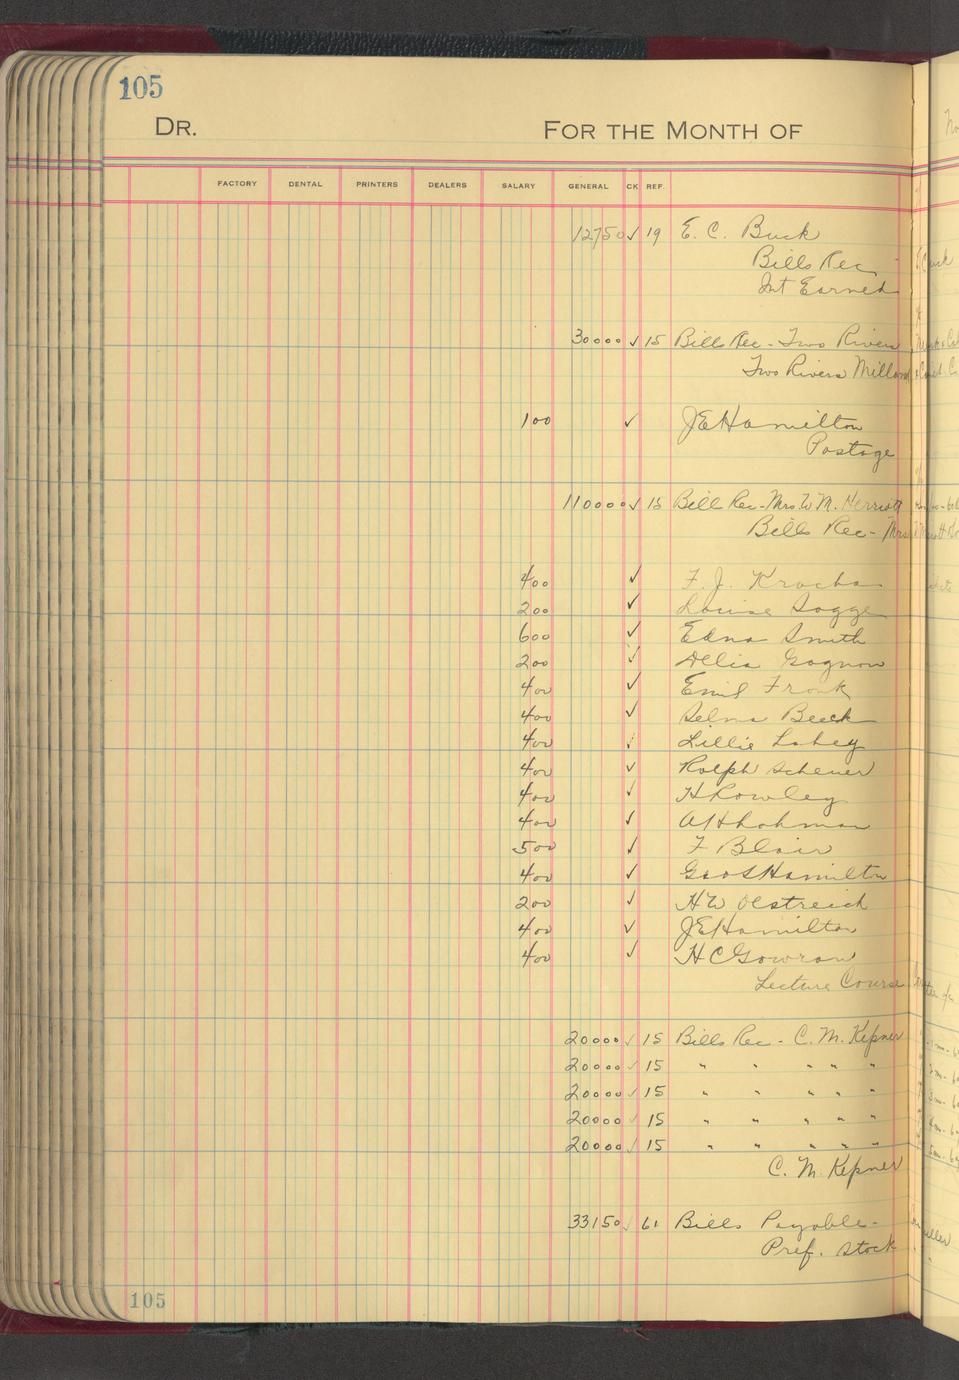 105
DR. FOR THE MONTH OF
FACTORY DENTAL PRINTERS DEALERS SALARY GENERAL CK REF.
12750 ✓ 19 E. C. Buck
Bills Rec
Int Earned
30000 ✓ 15 Bills Rec - Two Rivers
Two Rivers
100 ✓ J E Hamilton
Postage
110000 ✓ 15 Bill Rec - Mrs. W. M. Herriott
Bills Rec - Mrs
400 ✓ F. J. Krocha
200 ✓ Louise Sogge
600 ✓ Edna Smith
200 ✓ Delia Gagnon
400 ✓ Emil Fronk
400 ✓ Selma Beeck
400 ✓ Lillie Lahey
400 ✓ Ralph Scheuer
400 ✓ H Rowley
400 ✓ A H Lohman
500 ✓ F Blair
400 ✓ Geo S Hamilton
200 ✓ H W Olstreich
400 ✓ J E Hamilton
400 ✓ H C Gowran
Lecture Course
20000 ✓ 15 Bills Rec - C. M. Kepner
20000 ✓ 15 " " " " "
20000 ✓ 15 " " " " "
20000 ✓ 15 " " " " "
20000 ✓ 15 " " " " "
C. M. Kepner
33150 ✓ 61 Bills Payable -
Pref. Stock
105